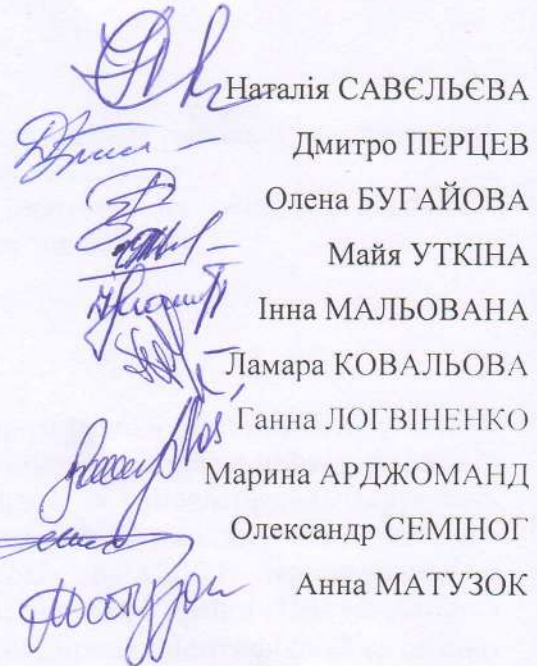 Наталія САВЄЛЬЄВА
Дмитро ПЕРЦЕВ
Олена БУГАЙОВА
Майя УТКІНА
Інна МАЛЬОВАНА
Ламара КОВАЛЬОВА
Ганна ЛОГВІНЕНКО
Марина АРДЖОМАНД
Олександр СЕМІНОГ
Анна МАТУЗОК